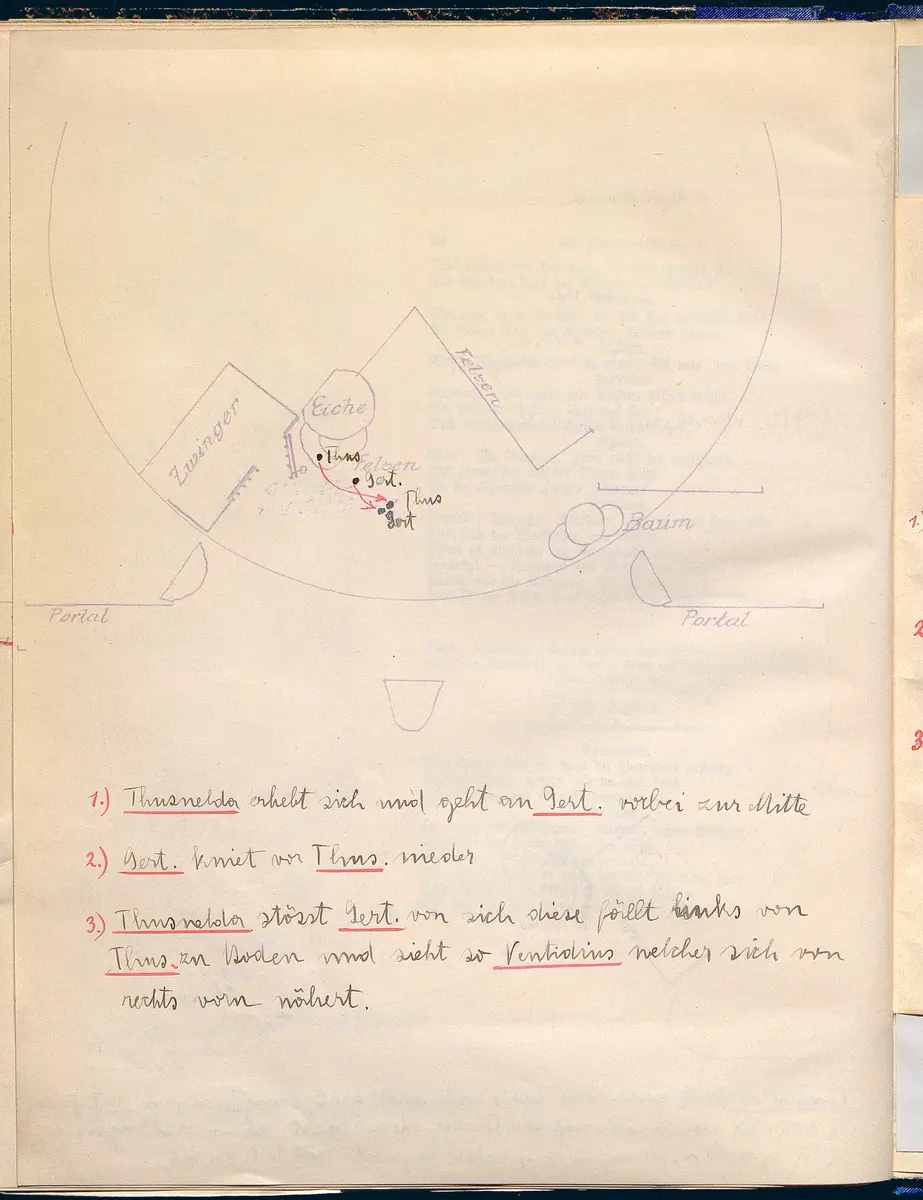 Felsen
Eiche
Zwinger
Thus
Felsen
Gert.
Thus
Gert
Baum
Portal
Portal
1.) Thusnelda erhebt sich und geht an Gert. vorbei zur Mitte
2.) Gert. kniet vor Thus. nieder
3.) Thusnelda stösst Gert. von sich diese fällt links von
Thus. zu Boden und sieht so Ventidius welcher sich von
rechts vorn nähert.
1.)
2
3